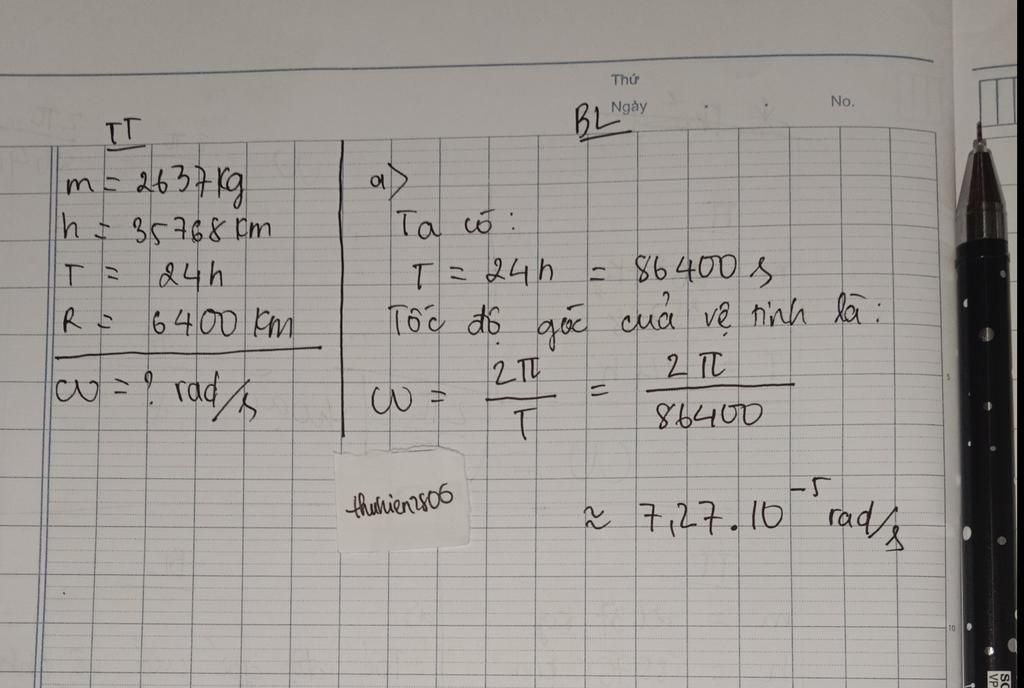 Thứ
Ngày
No.
TT
m = 2637 kg
h = 35768 km
T = 24h
R = 6400 km
ω = ? rad/s
BL
a>
Ta có:
T = 24h = 86400 s
Tốc độ góc của vệ tinh là:
ω = 2π/T = 2π/86400
≈ 7,27.10⁻⁵ rad/s
5
10